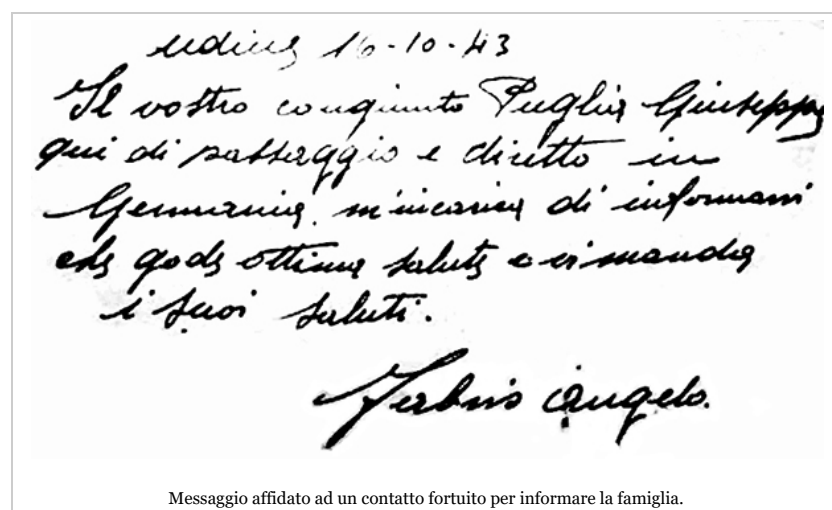 Udine 16-10-43
Il vostro congiunto Puglia Giuseppe
qui di passaggio e diretto in
Germania m'incarica di informarvi
che gode ottima salute e vi manda
i suoi saluti.
Angelo.
Messaggio affidato ad un contatto fortuito per informare la famiglia.